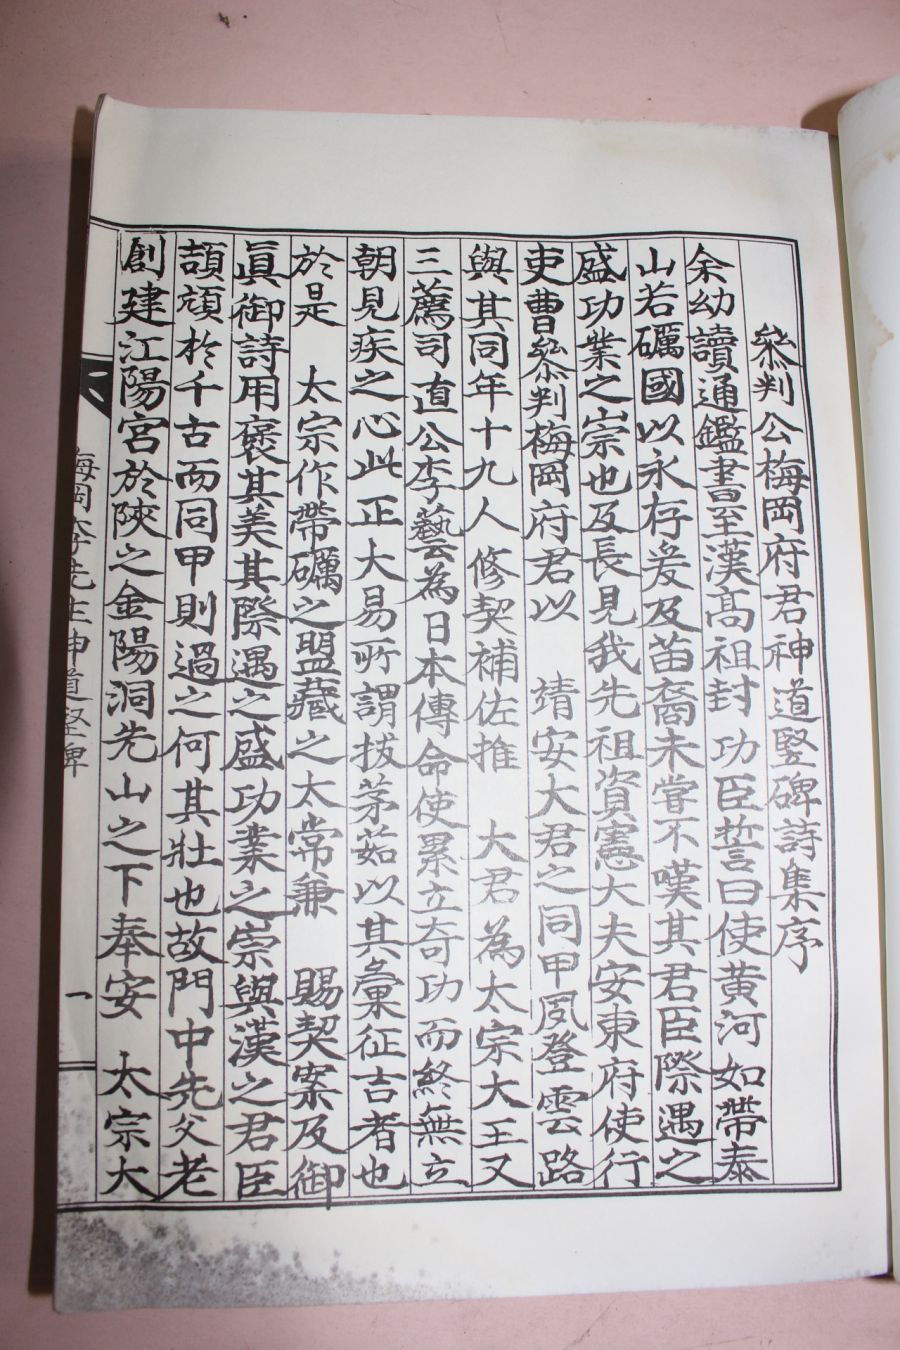 叅判公梅岡府君神道竪碑詩集序
余幼讀通鑑書至漢高祖封功臣誓曰使黃河如帶泰
山若礪國以永存爰及苗裔未嘗不嘆其君臣際遇之
盛功業之崇也及長見我先祖資憲大夫安東府使行
吏曹叅判梅岡府君以 靖安大君之同甲夙登雲路
與其同年十九人修契補佐推 大君為太宗大王又
三薦司直公李藝為日本傳命使累立奇功而終無立
朝見疾之心此正大易所謂拔茅茹以其彙征吉者也
於是 太宗作帶礪之盟藏之太常兼 賜契案及御
眞御詩用褒其美其際遇之盛功業之崇與漢之君臣
頡頏於千古而同甲則過之何其壯也故門中先父老
創建江陽宮於陜之金陽洞先山之下奉安 太宗大
梅岡李先生神道竪碑 一